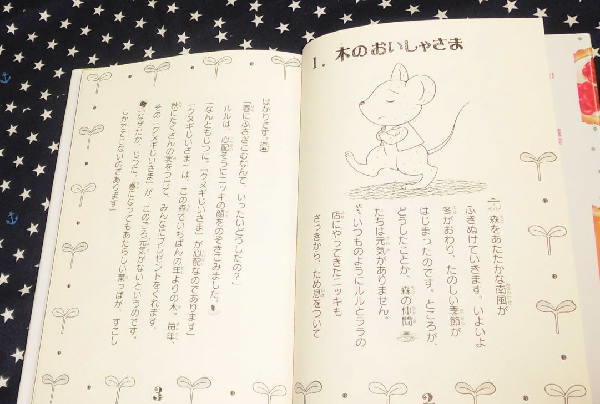 1. 木のおいしゃさま
森をあたたかな南風が
ふきぬけていきます。いよいよ
冬がおわり、たのしい季節が
はじまったのです。ところが、
どうしたことか、森の仲間
たちは元気がありません。
いつものようにルルとララの
店にやってきたニッキも
さっきから、ため息をついて
ばかりです。
「春にふさぎこむなんて、いったいどうしたの？」
ルルは、心配そうにニッキの顔をのぞきこみました。
「なんともじつに、『クヌギじいさま』が心配なのであります」
『クヌギじいさま』は、この森でいちばんの年よりの木。毎年、
秋にたくさんの実をつけて、みんなにプレゼントをくれます。
その『クヌギじいさま』が、このごろ元気がないというのです。
春になってもあたらしい葉っぱが、すこし
であります」
2
3